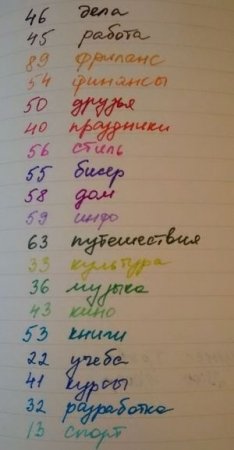 46 дела
45 работа
89 фриланс
54 финансы
50 друзья
40 праздники
56 стиль
55 бисер
58 дом
59 инфо
63 путешествия
33 культура
36 музыка
43 кино
53 книги
22 учеба
41 курсы
32 разработка
13 спорт